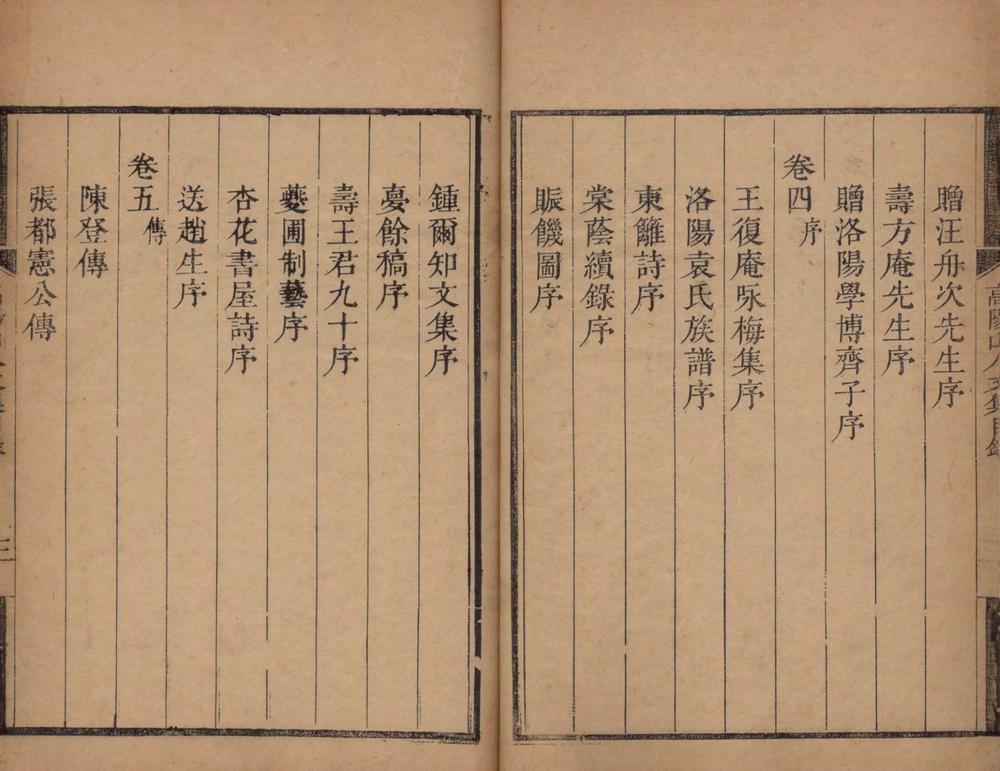 高陽山人文集目錄
贈汪舟次先生序
壽方庵先生序
贈洛陽學博齊子序
卷四 序
王復庵咏梅集序
洛陽袁氏族譜序
東籬詩序
棠蔭續錄序
賑饑圖序
鍾爾知文集序
憂餘稿序
壽王君九十序
夔圃制藝序
杏花書屋詩序
送趙生序
卷五 傳
陳登傳
張都憲公傳